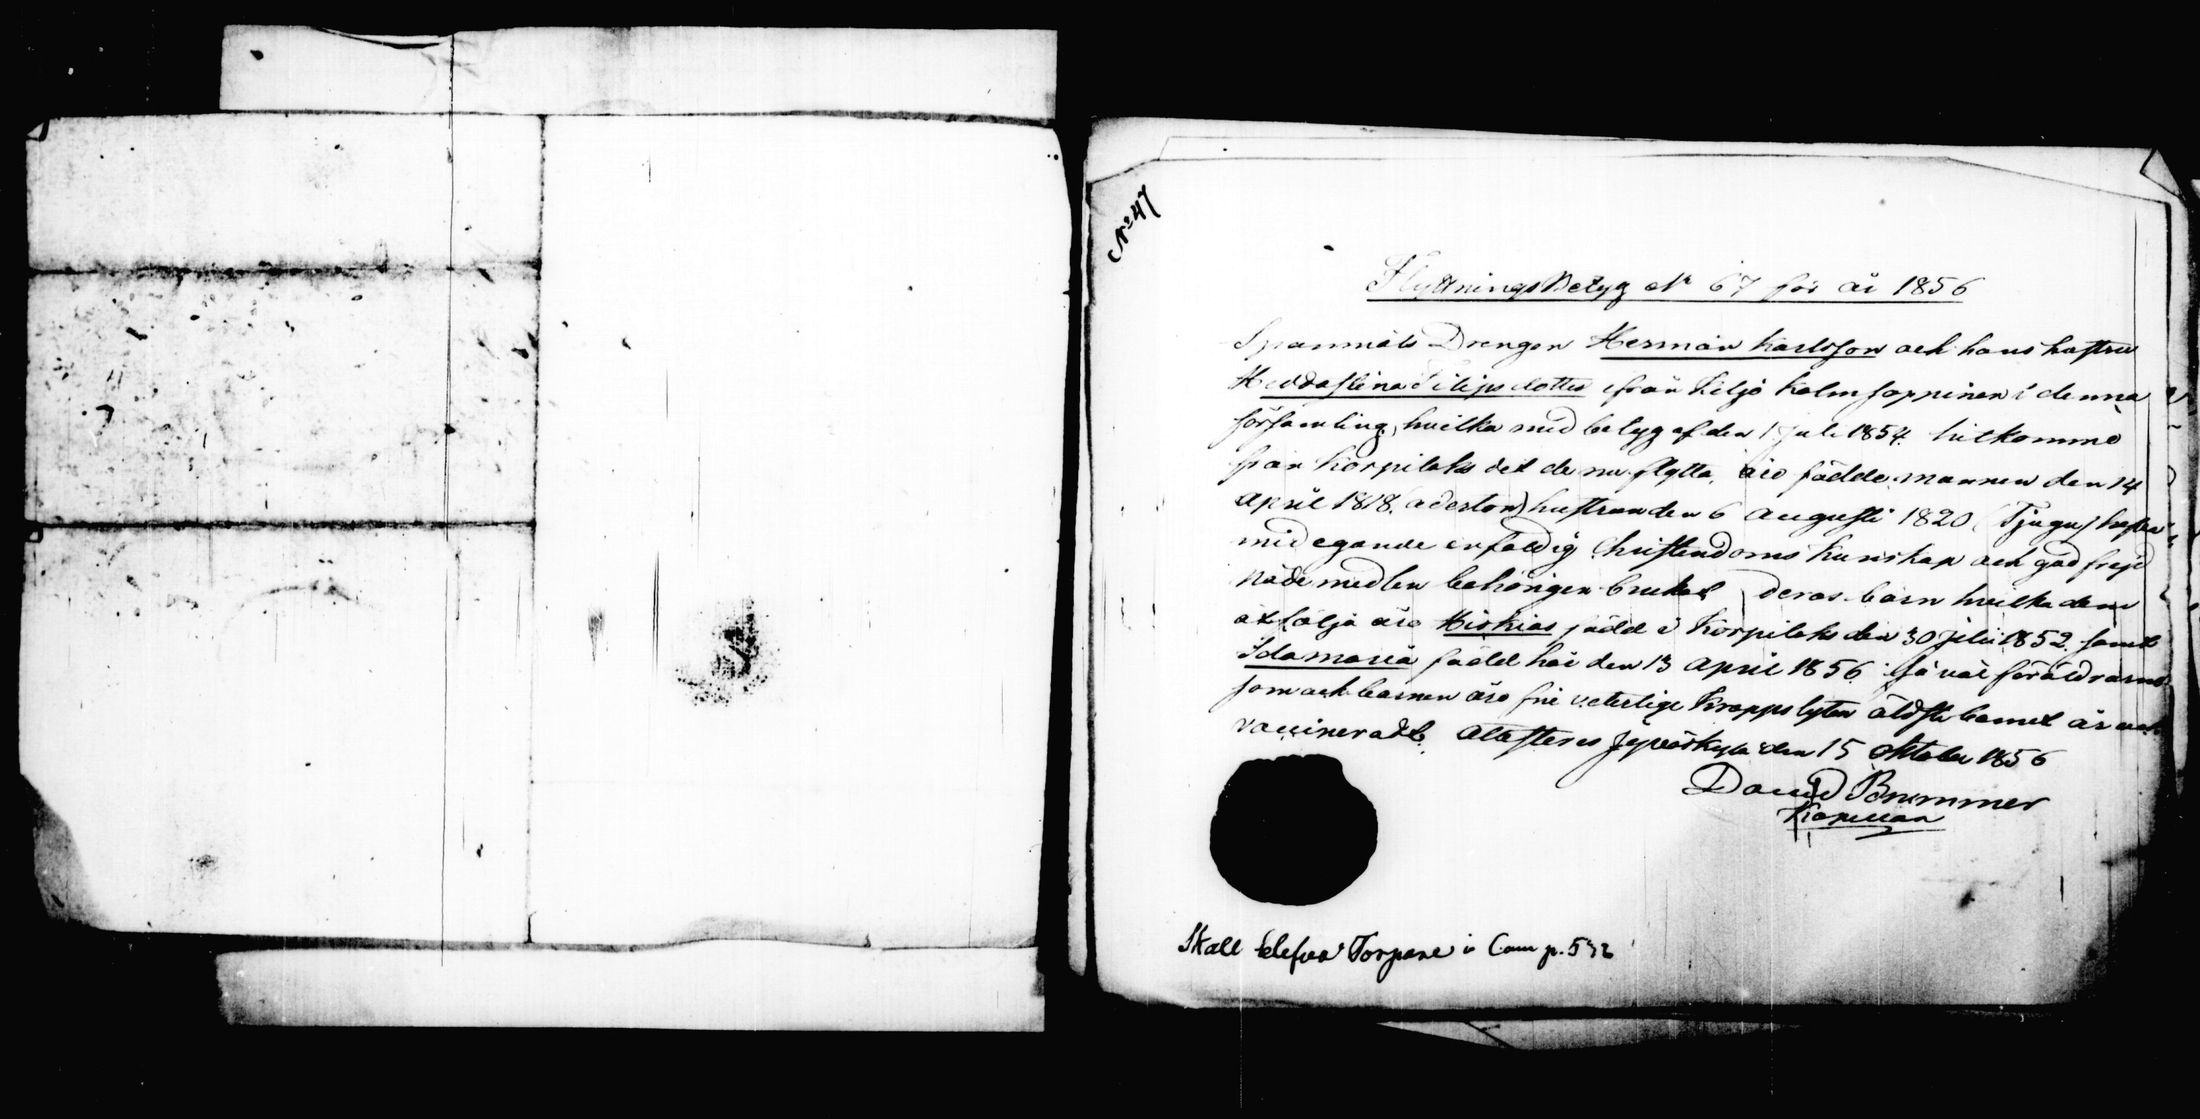 No 47
Flyttnings Betyg No 67 för år 1856
Spannmåls Drengen Herman Karlsson och hans hustru
Heddastina Filips dotter från Keljo Kolmsoppinen i denna
församling, hvilka med betyg af den 1 Juli 1854 hitkommo
från Korpilaks dit de nu flytta, äro födde mannen den 14
April 1818. (aderton) hustrun den 6 Augusti 1820 (Tjugu) hafva
med egande enfaldig Christendoms kunskap och god frejd
Nådemedlen behörigen brukat, deras barn hvilka dem
åtfölja äro Hiskias född i Korpilaks den 30 Juli 1852 samt
Idamaria född här den 13 April 1856 så väl föräldrarne
som ock barnen äro frie veterlige Kroppslyten äldsta barnet är ock
vaccineradt. Attesteras Jyväskylä den 15 Oktober 1856
David Brummer
Kapellan
Skall blefva Torpare i Cam p. 532